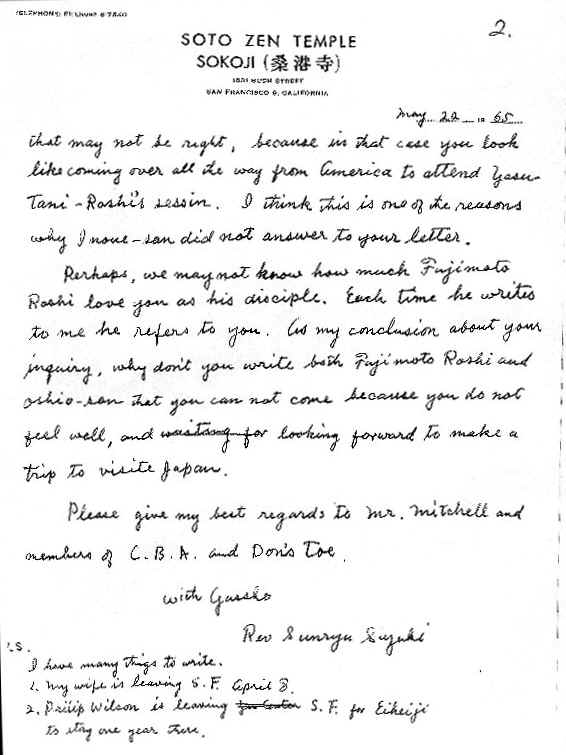 2.
SOTO ZEN TEMPLE
SOKOJI (桑港寺)
1881 BUSH STREET
SAN FRANCISCO 9, CALIFORNIA
May 22 19 65
that may not be right, because in that case you look
like coming over all the way from America to attend Yasu-
Tani-Roshi's sessin. I think this is one of the reasons
why Inoue-san did not answer to your letter.
Perhaps, we may not know how much Fujimoto
Roshi love you as his disciple. Each time he writes
to me he refers to you. As my conclusion about your
inquiry, why don't you write both Fujimoto Roshi and
oshio-san that you can not come because you do not
feel well, and waitang for looking forward to make a
trip to visite Japan.
Please give my best regards to Mr. Mitchell and
members of C.B.A. and Don's Toe.
with Gassho
Rev Sunryu Suzuki
P.S.
I have many things to write.
1. My wife is leaving S.F. April 8.
2. Philip Wilson is leaving S.F. for Eikeiji
to stay one year there.